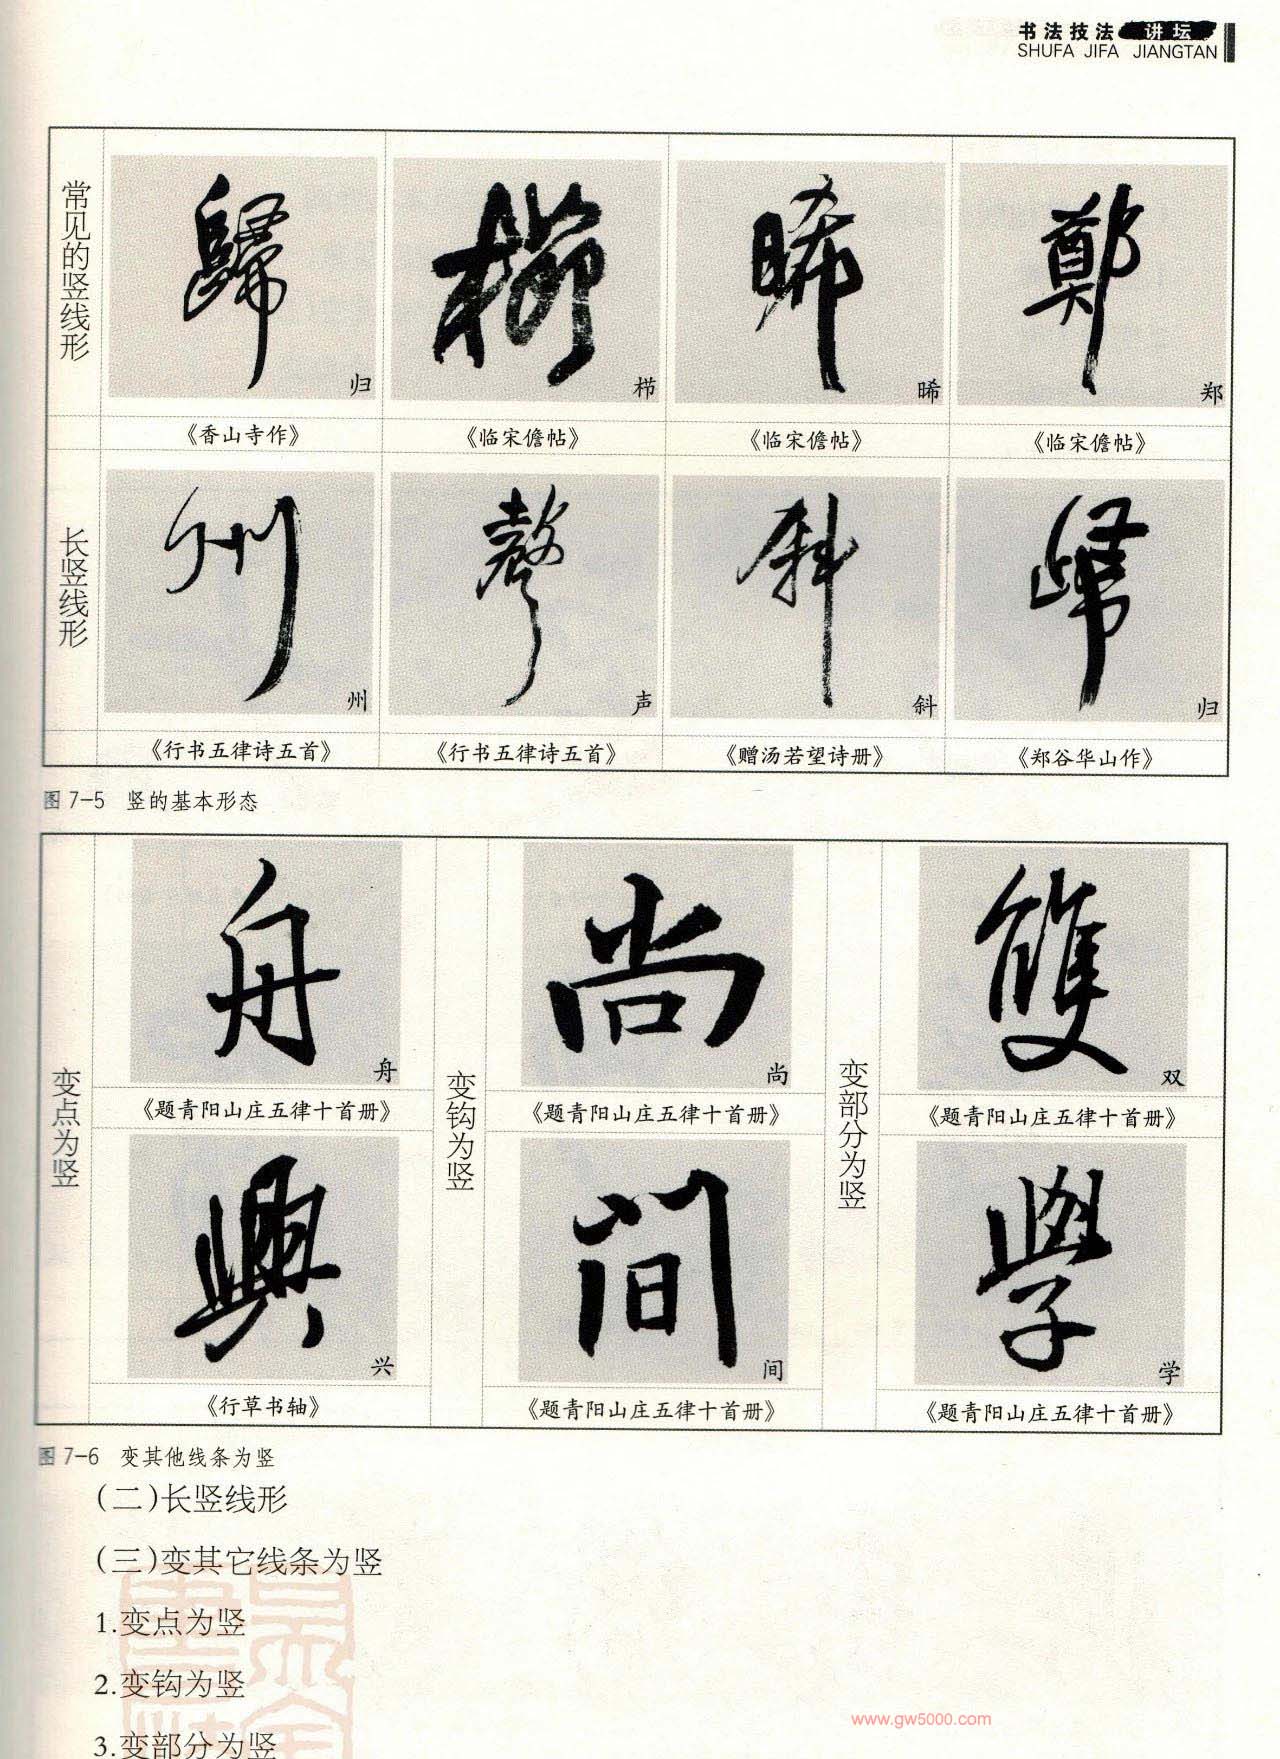 书法技法 讲坛
SHUFA JIFA JIANGTAN
常见的竖线形
歸 归
櫛 栉
晞 晞
鄭 郑
《香山寺作》 《临宋儋帖》 《临宋儋帖》 《临宋儋帖》
长竖线形
州 州
聲 声
斜 斜
歸 归
《行书五律诗五首》 《行书五律诗五首》 《赠汤若望诗册》 《郑谷华山作》
图 7-5 竖的基本形态
变点为竖
舟 舟
《题青阳山庄五律十首册》
興 兴
《行草书轴》
变钩为竖
尚 尚
《题青阳山庄五律十首册》
间 间
《题青阳山庄五律十首册》
变部分为竖
雙 双
《题青阳山庄五律十首册》
學 学
《题青阳山庄五律十首册》
图 7-6 变其他线条为竖
(二)长竖线形
(三)变其它线条为竖
1.变点为竖
2.变钩为竖
3.变部分为竖
www.gw5000.com